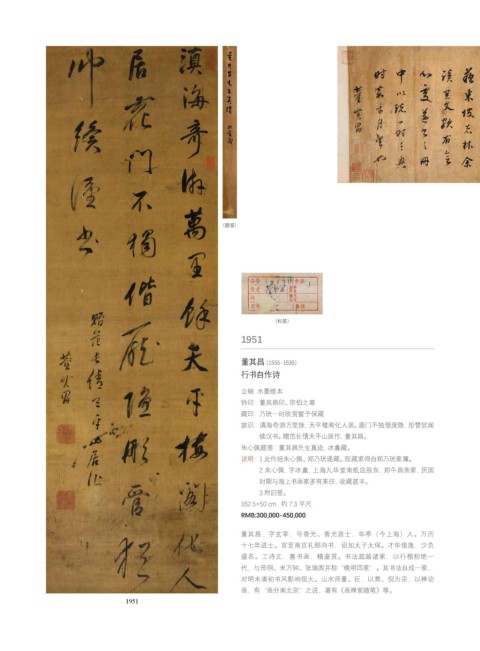 滇海奇游万里馀天平楼阁化人
居鹿门不独偕庞隐彤管犹
帅续汉书
赠范长倩天平山居作
董其昌
董其昌
(藏签)
(标签)
1951
董其昌 (1555-1636)
行书自作诗
立轴 水墨绫本
钤印：董其昌印、宗伯之章
藏印：乃珖一时欣赏暂于保藏
款识：滇海奇游万里馀，天平楼阁化人居。鹿门不独偕庞隐，彤管犹闻
续汉书。赠范长倩天平山居作，董其昌。
朱心佩题签：董其昌先生真迹，冰盦藏。
说明：1.此作经朱心佩、郑乃珖递藏。现藏家得自郑乃珖家属。
2.朱心佩，字冰盦，上海九华堂南纸店股东，郑午昌亲家，民国
时期与海上书画家多有来往，收藏甚丰。
3.附旧签。
162.5×50 cm. 约 7.3 平尺
RMB:300,000-450,000
董其昌，字玄宰，号香光、香光居士，华亭（今上海）人。万历
十七年进士。官至南京礼部尚书，诏加太子太保。才华俊逸，少负
盛名。工诗文，善书画，精鉴赏。书法疏越诸家，以行楷称绝一
代，与邢侗、米万钟、张瑞图并称“晚明四家”。其书法自成一家，
对明末清初书风影响很大。山水师董、巨，以黄、倪为宗，以禅论
画，有“画分南北宗”之说，著有《画禅室随笔》等。
1951